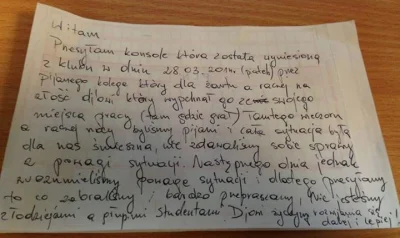 Witam
Przesyłam konsole która została wyniesiona
z klubu w dniu 28.03.2014 (piątek) przez
pijanego kolegę który dla żartu a raczej na
złość djowi który wypchnął go ze swojego
miejsca pracy (tam gdzie grał) Tamtego wieczoru
a raczej nocy byliśmy pijani i cała sytuacja była
dla nas śmieszna, nie zdawaliśmy sobie sprawy
z powagi sytuacji. Następnego dnia jednak
zrozumieliśmy powagę sytuacji i dlatego przesyłamy
to co zabraliśmy i bardzo przepraszamy, Nie jesteśmy
złodziejami a głupimi studentami Djom życzymy rozwijania się
dalej i lepiej!